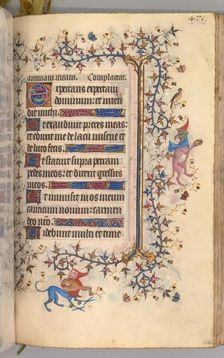 animam meam. Complaceat.
Expectans expectaui
dominum: et inten
dit michi.
Et exaudiuit preces meas:
et eduxit me de lacu miserie et
de luto fecis.
Et statuit supra petram
pedes meos: et direxit gressus
meos.
Et immisit in os meum
canticum nouum: carmen
deo nostro.
Videbunt multi et time